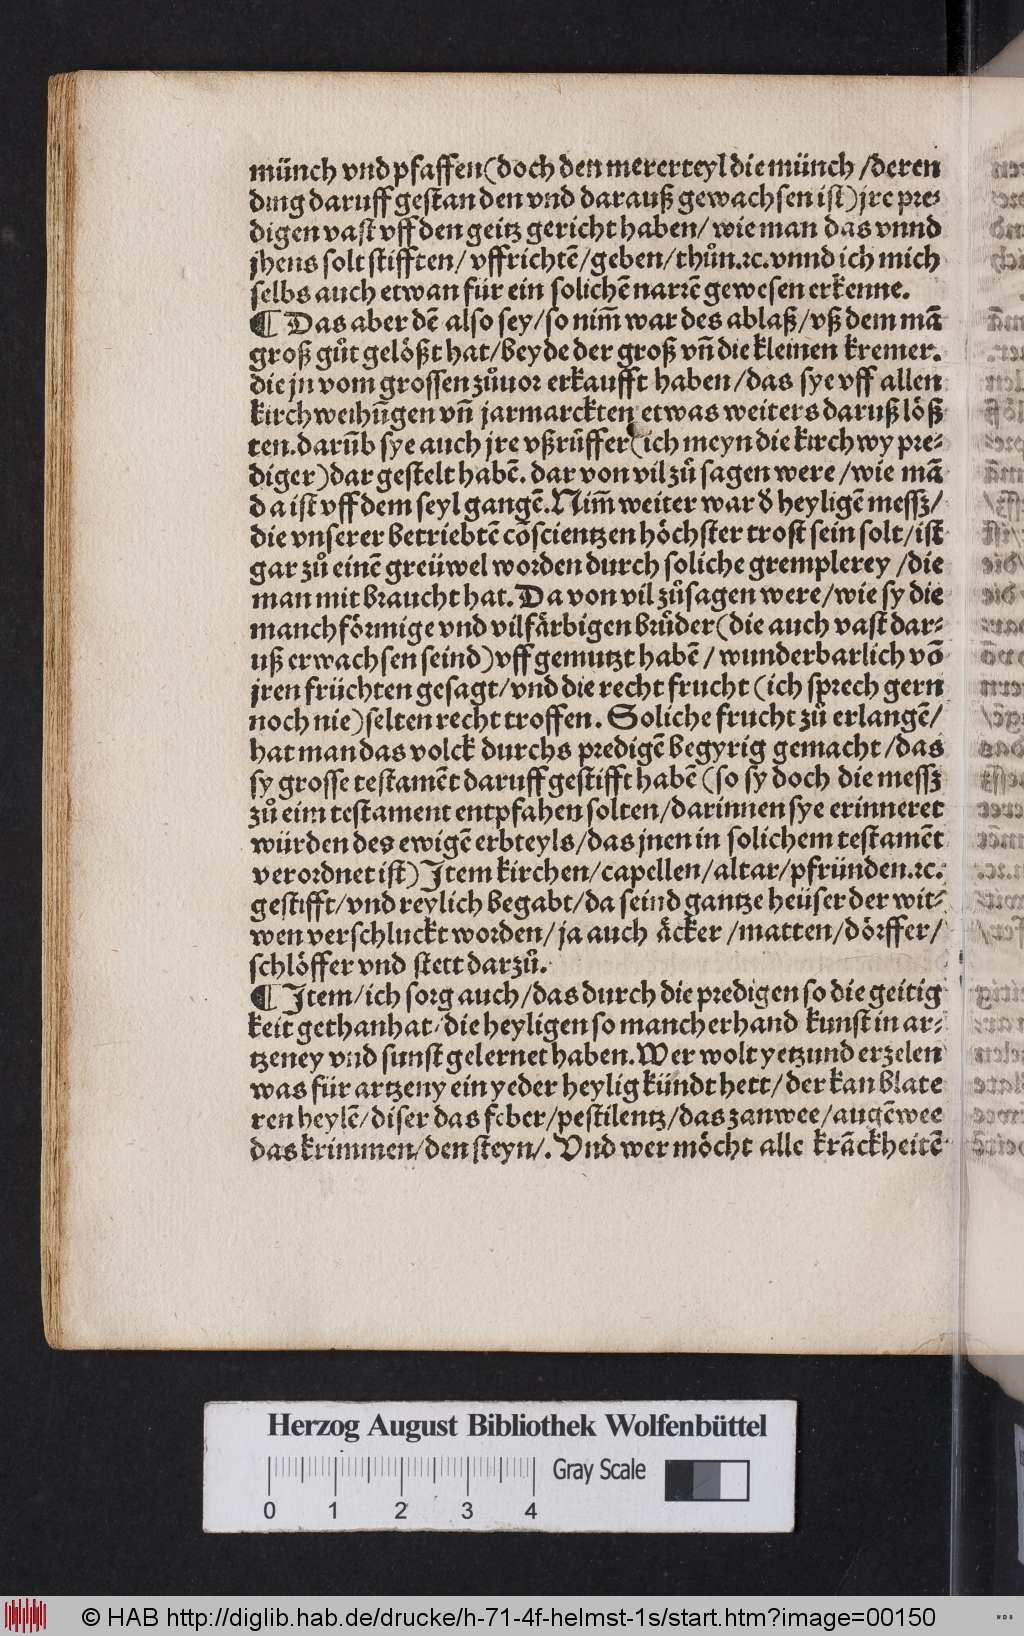 münch vnd pfaffen (doch den mererteyl die münch / deren
ding daruff gestanden vnd darauß gewachsen ist) jre pre⸗
digen vast vff den geitz gericht haben / wie man das vnnd
jhens solt stifften / vffrichtē / geben / thůn.ꝛc. vnnd ich mich
selbs auch etwan für ein solichē narrē gewesen erkenne.
¶ Das aber dē also sey / so nim̄ war des ablaß / vß dem mā
groß gůt gelößt hat / beyde der groß vn̄ die kleinen kremer.
die jn vom grossen zůuor erkaufft haben / das sye vff allen
kirchweihūgen vn̄ jarmarckten etwas weiters daruß löß
ten. darūb sye auch jre vßrůffer (ich meyn die kirchwy pre⸗
diger) dar gestelt habē. dar von vil zů sagen were / wie mā
da ist vff dem seyl gangē. Nim̄ weiter war d̕ heyligē messz /
die vnserer betriebtē cōscientzen höchster trost sein solt / ist
gar zů einē greüwel worden durch soliche gremplerey / die
man mit braucht hat. Da von vil zůsagen were / wie sy die
manchförmige vnd vilfärbigen brůder (die auch vast dar⸗
uß erwachsen seind) vff gemutzt habē / wunderbarlich vō
jren früchten gesagt / vnd die recht frucht (ich sprech gern
noch nie) selten recht troffen. Soliche frucht zů erlangē /
hat man das volck durchs predigē begyrig gemacht / das
sy grosse testamēt daruff gestifft habē (so sy doch die messz
zů eim testament entpfahen solten / darinnen sye erinneret
würden des ewigē erbteyls / das jnen in solichem testamēt
verordnet ist) Item kirchen / capellen / altar / pfründen.ꝛc.
gestifft / vnd reylich begabt / da seind gantze heüser der wit⸗
wen verschluckt worden / ja auch äcker / matten / dörffer /
schlöffer vnd stett darzů.
¶ Item / ich sorg auch / das durch die predigen so die geitig
keit gethan hat / die heyligen so mancherhand kunst in ar⸗
tzeney vnd sunst gelernet haben. Wer wolt yetzund erzelen
was für artzeny ein yeder heylig kündt hett / der kan blate
ren heylē / diser das feber / pestilentz / das zanwee / augēwee
das krimmen / den steyn /. Vnd wer möcht alle krāckheitē
Herzog August Bibliothek Wolfenbüttel
Gray Scale
0 1 2 3 4
© HAB http://diglib.hab.de/drucke/h-71-4f-helmst-1s/start.htm?image=00150